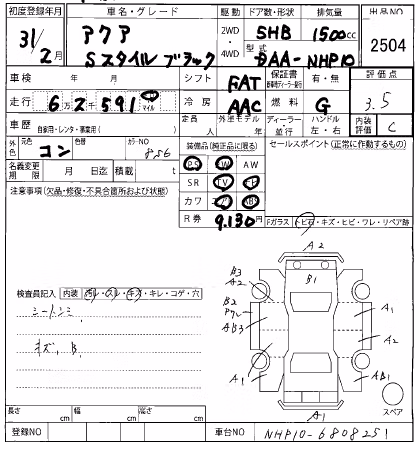 初度登録年月 車名・グレード 駆動 ドア数・形状 排気量 出品NO
31/2月 アクア 2WD 5HB 1500cc 2504
Sスタイルブラック 4WD 型式 DAA-NHP10
車検 年 月 シフト FAT 保証書 有・無 評価点
走行 6万2千591 マイル 冷房 AAC 燃料 G 3.5
車歴 自家用・レンタ・事業用( ) 定員 人 外装モデル 年 ディーラー 並行 ハンドル 左・右 内装評価 C
外色 元色 コン 色替 カラーNO 856 装備品(純正品に限る) セールスポイント(正常に作動するもの)
名義変更期限 月 日迄 積載 t PS PW AW
注意事項(欠品・修復・不具合箇所および状態) SR TV
カワ エア ABS
R券 9.130円 Fガラス トビ石・キズ・ヒビ・ワレ・リペア跡
A2
B3 A2 B1
検査員記入 内装 汚レ・スレ・キズ・キレ・コゲ・穴 B2 A1
シートシミ アウレ
AB3 A2
キズ、B
A1 AB1
スペア
A1
長さ cm 幅 cm 高さ cm
登録NO 車台NO NHP10-6808251